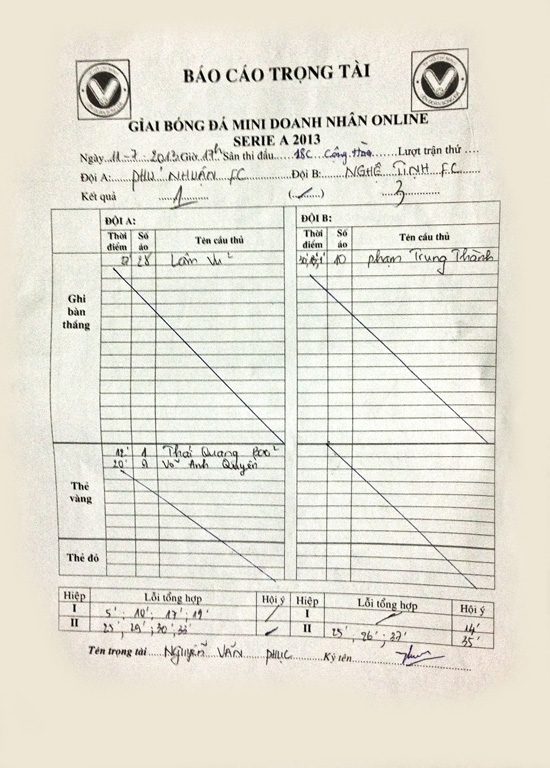 BÁO CÁO TRỌNG TÀI
GIẢI BÓNG ĐÁ MINI DOANH NHÂN ONLINE
SERIE A 2013
Ngày..11-7-2013.Giờ.17h Sân thi đấu......18C...Cộng Hòa......Lượt trận thứ ....
Đội A:......PHÚ NHUẬN FC...... Đội B:......NGHỆ TĨNH F.C......
Kết quả ......1...... (.../...) ......3......
ĐỘI A: ĐỘI B:
Thời điểm Số áo Tên cầu thủ Thời điểm Số áo Tên cầu thủ
Ghi bàn thắng
28 Lâm Vũ 10 phạm Trung Thành
Thẻ vàng
12' 1 Thái Quang
20' Võ Anh Quyền
Thẻ đỏ
Hiệp Lỗi tổng hợp Hội ý Hiệp Lỗi tổng hợp Hội ý
I 5' ; 10' ; 17' ; 19' I 14'
II 23' ; 29' ; 30' ; 33' II 25' , 26' ; 37' 35'
Tên trọng tài.....Nguyễn VĂN PHỤC........Ký tên